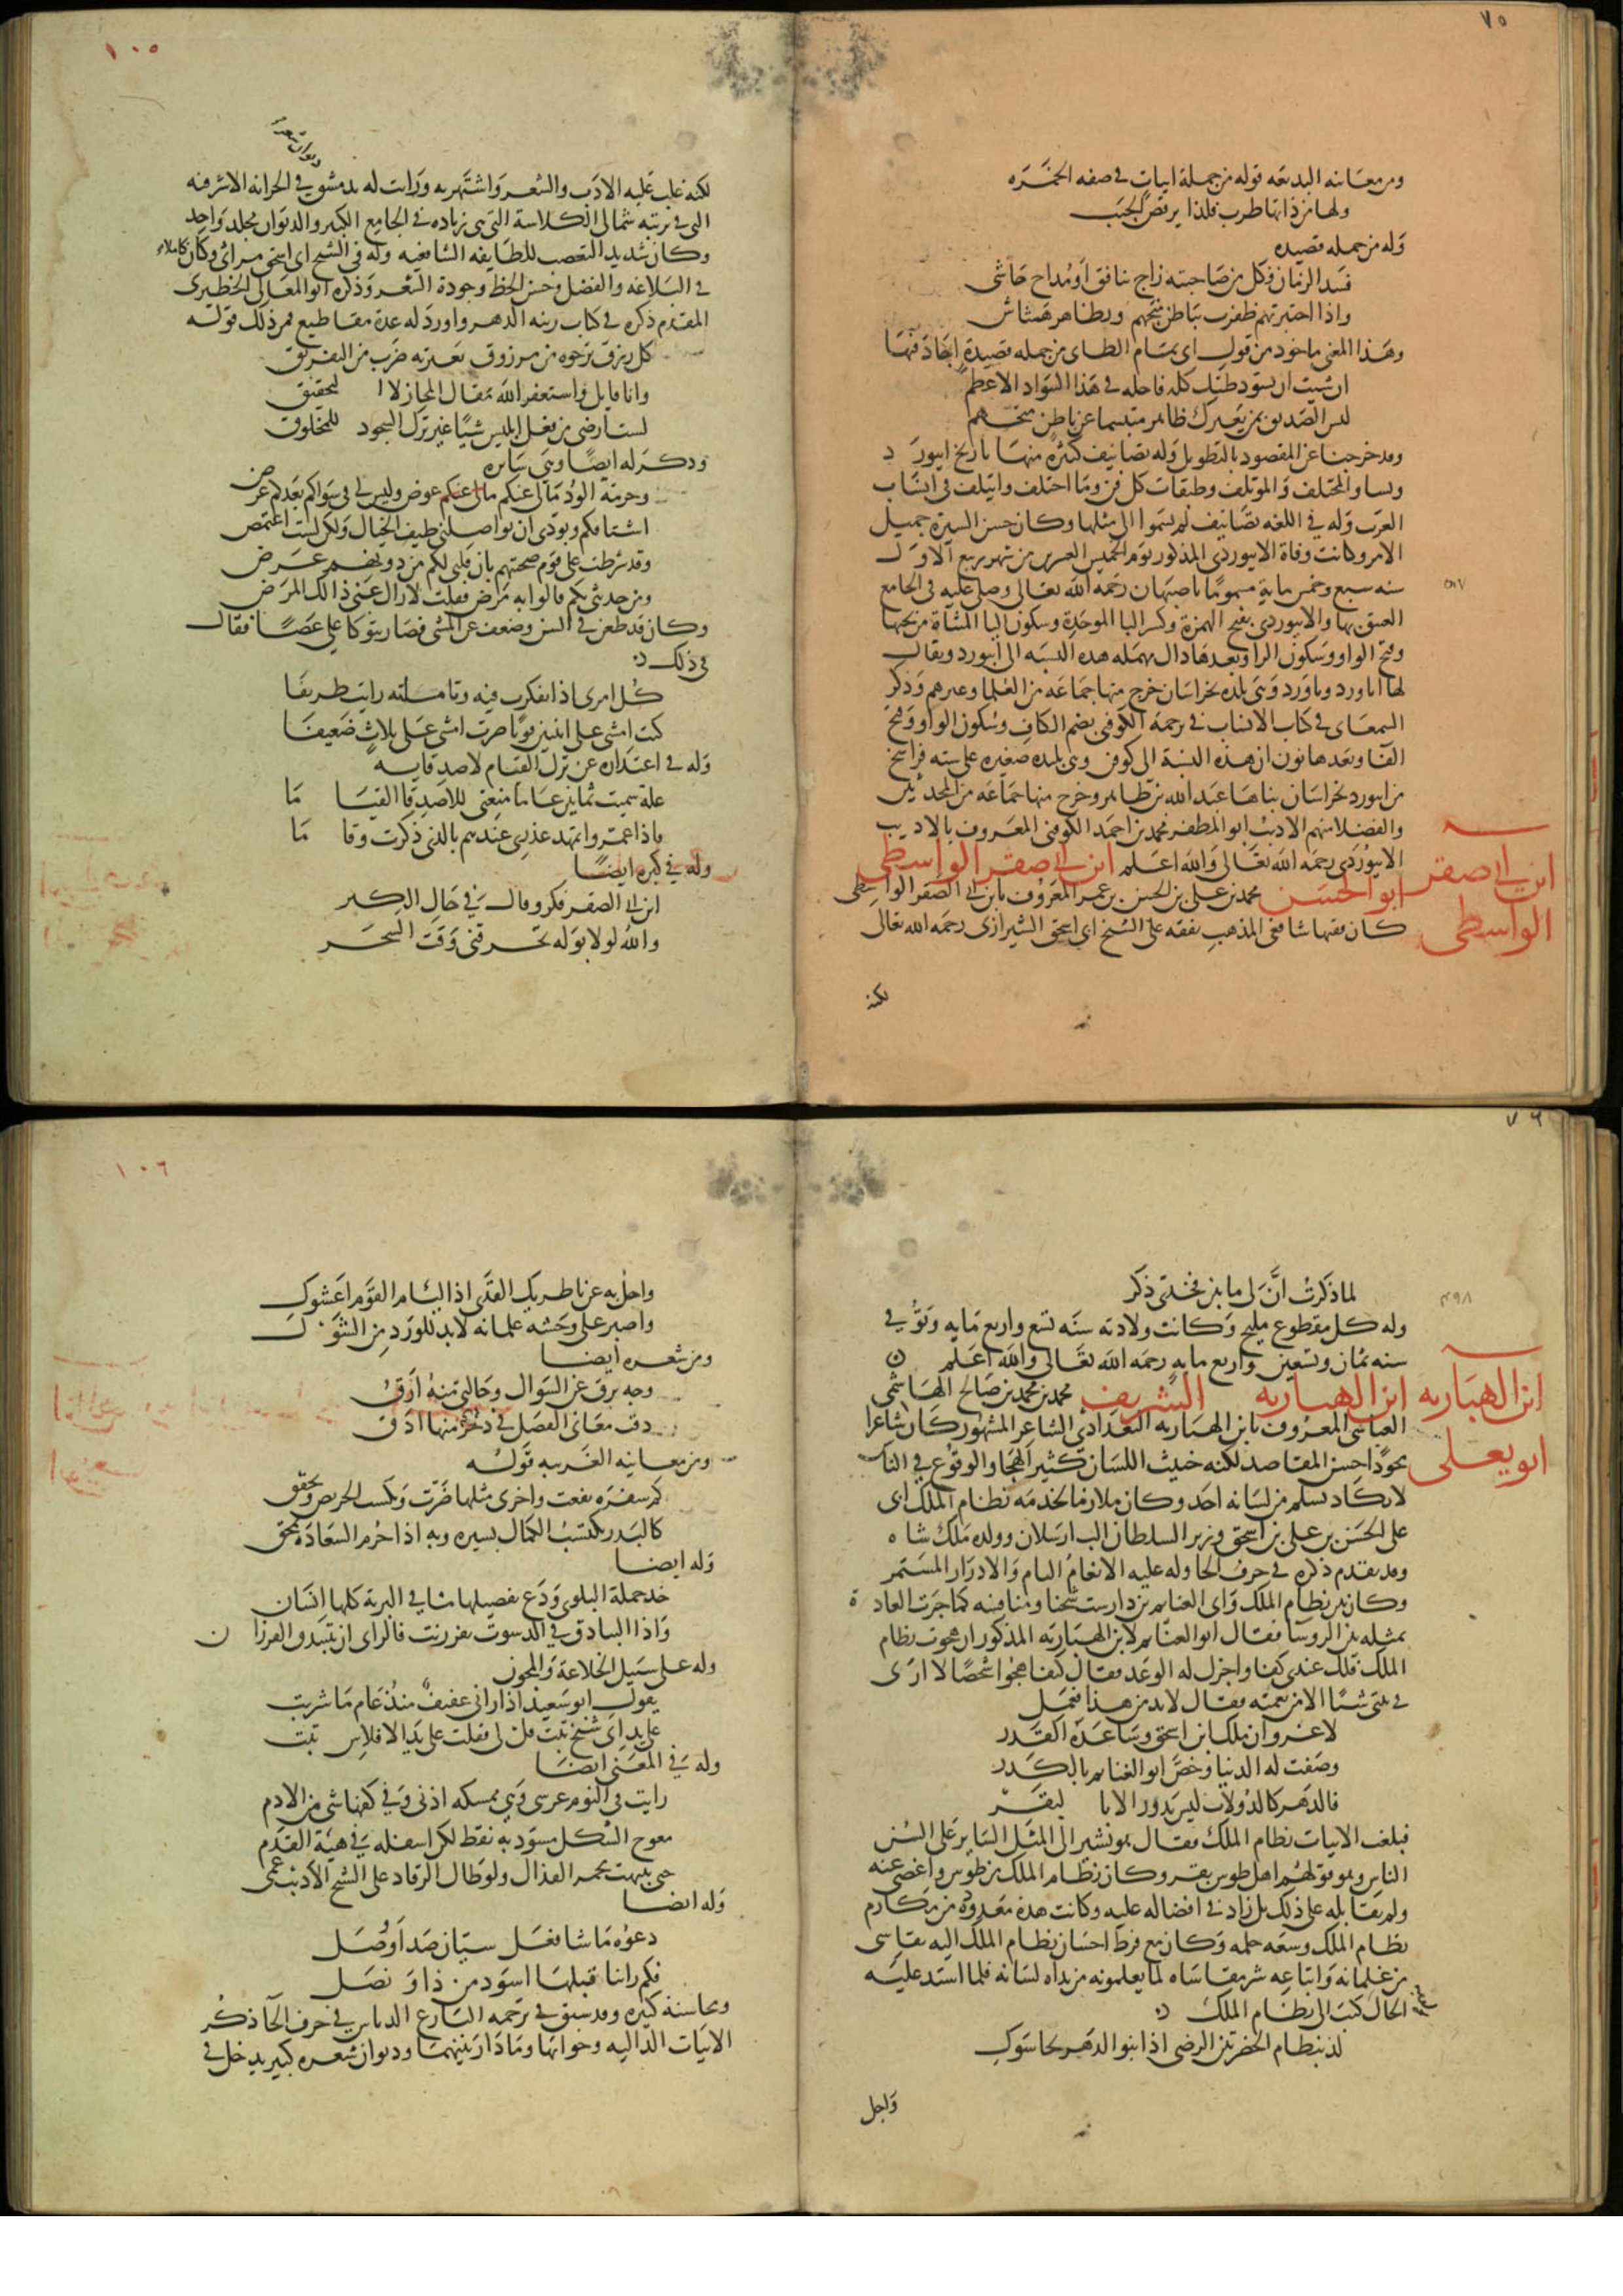 ٧٥
ومن معانيه البديعة قوله من جملة ابيات في صفه الخمره
ولها من ذاتها طرب فلذا يرقص الحبب
وله من جمله قصيده
فسد الزمان فكل من صاحبته راج ينافق او مداح حاشى
واذا اختبرتهم ظفرت بباطن متجهم وبظاهر هشاش
وهذا المعنى ماخوذ من قول ابى تمام الطاى من جمله قصيدة اجاد فيها
ان شيت ان يسود ظنك كله فاجله في هذا السواد الاعظم
ليس الصديق بمن يعيرك ظاهرا متبسما عن باطن متجهم
وقد خرجنا عن المقصود بالتطويل وله تصانيف كثيرة منها تاريخ ابيورد
ونسا والمختلف والموتلف وطبقات كل فن وما اختلف وايتلف في انساب
العرب وله في اللغه تصانيف لم يسبق الى مثلها وكان حسن السيرة جميل
الامر وكانت وفاة الابيوردى المذكور يوم الخميس العشرين من شهر ربيع الاول
سنه سبع وخمس ماية مسموما باصبهان رحمه الله تعالى وصلى عليه فى الجامع
العتيق بها والابيوردى بفتح الهمزة وكسر البا الموحدة وسكون اليا المثناة من تحتها
وفتح الواو وسكون الرا وبعدها دال مهمله هذه النسبه الى ابيورد ويقال
لها اباورد وباورد وهى بلده بخراسان خرج منها جماعه من العلما وغيرهم وذكر
السمعانى في كتاب الانساب في ترجمة الكوفنى بضم الكاف وسكون الواو وفتح
الفا وبعدها نون ان هذه النسبة الى كوفن وهى بليده صغيره على سته فراسخ
من ابيورد بخراسان بناها عبد الله بن طاهر وخرج منها جماعه من المحدثين
والفضلا منهم الاديب ابو المظفر محمد بن احمد الكوفنى المعروف بالاديب
الابيوردى رحمه الله تعالى والله اعلم ابن ابى صقر الواسطى
ابن ابى صقر
الواسطى
ابو الحسن محمد بن على بن الحسن بن عمر المعروف بابن ابى الصقر الواسطى
كان فقيها شافعى المذهب تفقه على الشيخ ابى اسحق الشيرازى رحمه الله تعالى
لكنه
١٠٥
لكنه غلب عليه الادب والشعر واشتهر به ورايت له بدمشق في الخزانه الاشرفيه ديوان شعره
التى فى تربته شمالى الكلاسة التى هى زياده في الجامع الكبير والديوان مجلد واحد
وكان شديد التعصب للطايفه الشافعيه وله فى الشيخ ابى اسحق مراثى وكان كاملا
فى البلاغه والفضل وحسن الخط وجودة الشعر وذكره ابو المعالى الخطيرى
المقدم ذكره فى كتاب زينه الدهر واورد له عدة مقاطيع فمن ذلك قوله
كل رزق ترجوه من مرزوق يعتريه ضرب من التعويق
وانا قايل واستغفر الله مقال المجاز لا التحقيق
لست ارضى من فعل ابليس شيا غير ترك السجود للمخلوق
وذكر له ايضا وهى سايره
وحرمة الود مالى عنكم عوض وليس لى فى سواكم بعدكم غرض
اشتاقكم وبودى ان يواصلنى طيف الخيال ولكن لست اغتمض
وقد شرطت على قوم صحبتهم بان قلبى لكم من دونهم عرض
ومن حديثى بكم قالوا به مرض فقلت لا زال عنى ذلك المرض
وكان قد طعن فى السن وضعف عن المشى فصار يتوكا على عصا فقال
فى ذلك
كل امرى اذا تفكرت فيه وتاملته رايت طريفا
كنت امشى على اثنين قويا صرت امشى على ثلاث ضعيفا
وله فى اعتذاره عن ترك القيام لاصدقايه
علة سميت ثمانين عاما منعتنى للاصدقا القياما
فاذا عمروا تمهد عذرى عندهم بالذى ذكرت وقاما
وله فى كبره ايضا
ابن ابى الصقر فكر وقال فى حال الكبر
والله لولا بوله تحرقنى وقت السحر
٧٦
لما ذكرت ان لى ما بين فخذى ذكر
وله كل مقطوع مليح وكانت ولادته سنه تسع واربع مايه وتوفى
٤٩٨
سنه ثمان وتسعين واربع مايه رحمه الله تعالى والله اعلم
ابن الهباريه
ابو يعلى
ابن الهباريه الشريف محمد بن محمد بن صالح الهاشمى
العباسى المعروف بابن الهباريه البغدادى الشاعر المشهور كان شاعرا
مجودا حسن المقاصد لكنه خبيث اللسان كثير الهجا والوقوع فى الناس
لا يكاد يسلم من لسانه احد وكان ملازما لخدمه نظام الملك ابى
على الحسن بن على بن اسحق وزير السلطان الب ارسلان وولده ملك شاه
وقد تقدم ذكره فى حرف الحا وله عليه الانعام التام والادرار المستمر
وكان بين نظام الملك وابى الغنايم بن دارست شحنا ومنافسه كما جرت العادة
بمثله بين الروسا فقال ابو الغنايم لابن الهباريه المذكور ان هجوت نظام
الملك فلك عندى كذا واجزل له الوعد فقال كيف اهجوا شخصا لا ارى
فى بيتى شيا الا من نعمته فقال لا بد من هذا فعمل
لا غرو ان ملك ابن اسحق وساعده القدر
وصفت له الدنيا وخص ابو الغنايم بالكدر
فالدهر كالدولاب ليس يدور الا بالبقر
فبلغت الابيات نظام الملك فقال هو يشير الى المثل الساير على السن
الناس وهو قولهم اهل طوس بقر وكان نظام الملك من طوس واغضى عنه
ولم يقابله على ذلك بل زاد فى افضاله عليه وكانت هذه معدوده من مكارم
نظام الملك وسعه حلمه وكان مع فرط احسان نظام الملك اليه يقاسى
من غلمانه واتباعه شر مقاساه لما يعلمونه من بذاه لسانه فلما اشتد عليه
الحال كتب الى نظام الملك
لذ بنظام الحضرتين الرضى اذا بنو الدهر تحاشوك
واجل
١٠٦
واجل به عن ناظريك القذى اذا ليام القوم اعشوك
واصبر على وحشه غلمانه لا بد للورد من الشوك
ومن شعره ايضا
وجه يرق عن السوال وحالتى منه ارق
دقت معانى الفضل فى وحرفتى منها ادق
ومن معانيه الغريبه قوله
كم سفره نفعت واخرى مثلها ضرت ويكسب الحريص ويخفق
كالبدر يكتسب الكمال بسيره وبه اذا حرم السعادة يمحق
وله ايضا
خذ جملة البلوى ودع تفصيلها ما فى البرية كلها انسان
واذا البيادق فى الدسوت تفرزنت فالراى ان يتبيدق الفرزان
وله على سبيل الخلاعة والمجون
يقول ابو سعيد اذ رانى عفيف منذ عام ما شربت
على يد اى شيخ تبت قل لى فقلت على يد الافلاس تبت
وله فى المعنى ايضا
رايت فى النوم عرسى وهى ممسكه اذنى وفى كفها شى من الادم
معوج الشكل مسود به نقط لكن اسفله فى هيئة القدم
حتى تنبهت محمر القذال ولو طال الرقاد على الشيخ الاديب عمى
وله ايضا
دعوه ما شا فعل سيان صد او وصل
فكم راينا قبلها اسود من ذا ونصل
ومحاسنه كثيره وقد سبق فى ترجمة البارع الدباس فى حرف الحا ذكر
الابيات الداليه وجوابها وما دار بينهما وديوان شعره كبير يدخل فى